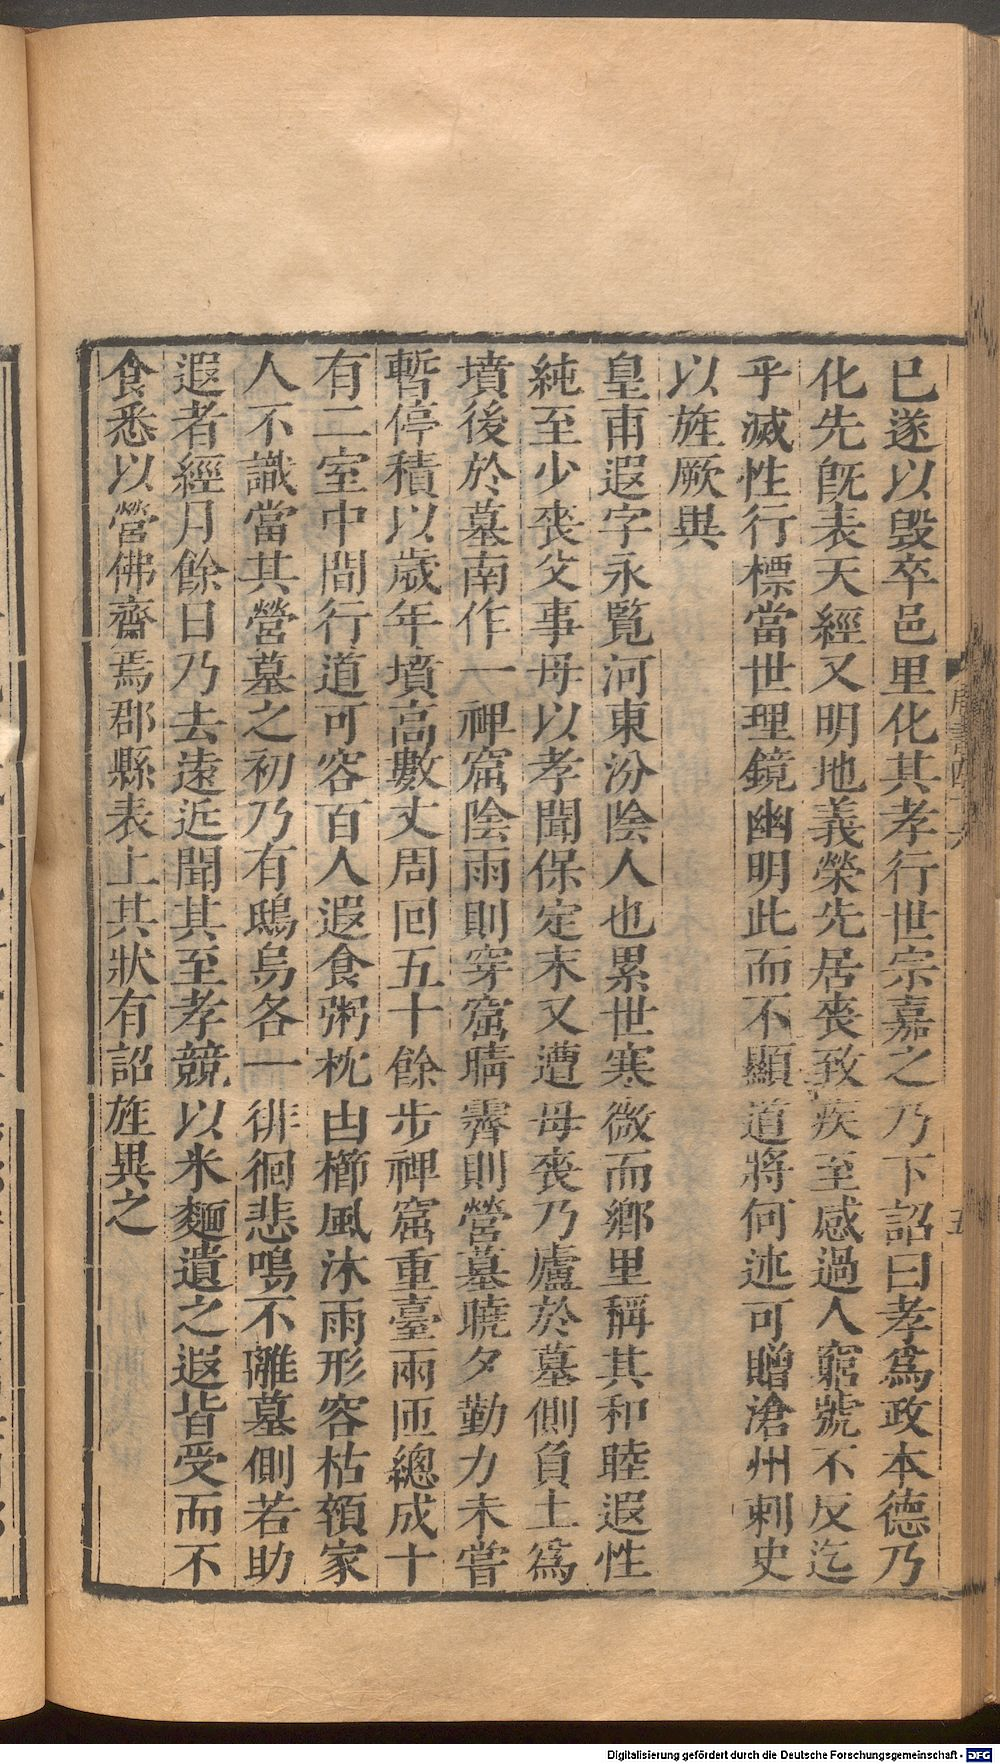 巳遂以毀卒邑里化其孝行世宗嘉之乃下詔曰孝爲政本德乃
化先旣表天經又明地義榮先居喪致疾至感過人窮號不反迄
乎滅性行標當世理鏡幽明此而不顯道將何述可贈滄州刺史
以旌厥異
皇甫遐字永覽河東汾陰人也累世寒微而鄉里稱其和睦遐性
純至少喪父事母以孝聞保定末又遭母喪乃廬於墓側負土爲
墳後於墓南作一禪窟陰雨則穿窟晴霽則營墓曉夕勤力未嘗
暫停積以歲年墳高數丈周回五十餘步禪窟重臺兩匝總成十
有二室中間行道可容百人遐食粥枕凷櫛風沐雨形容枯顇家
人不識當其營墓之初乃有鴟烏各一徘徊悲鳴不離墓側若助
遐者經月餘日乃去遠近聞其至孝競以米麵遺之遐皆受而不
食悉以營佛齋焉郡縣表上其狀有詔旌異之
五
Digitalisierung gefördert durch die Deutsche Forschungsgemeinschaft - DFG